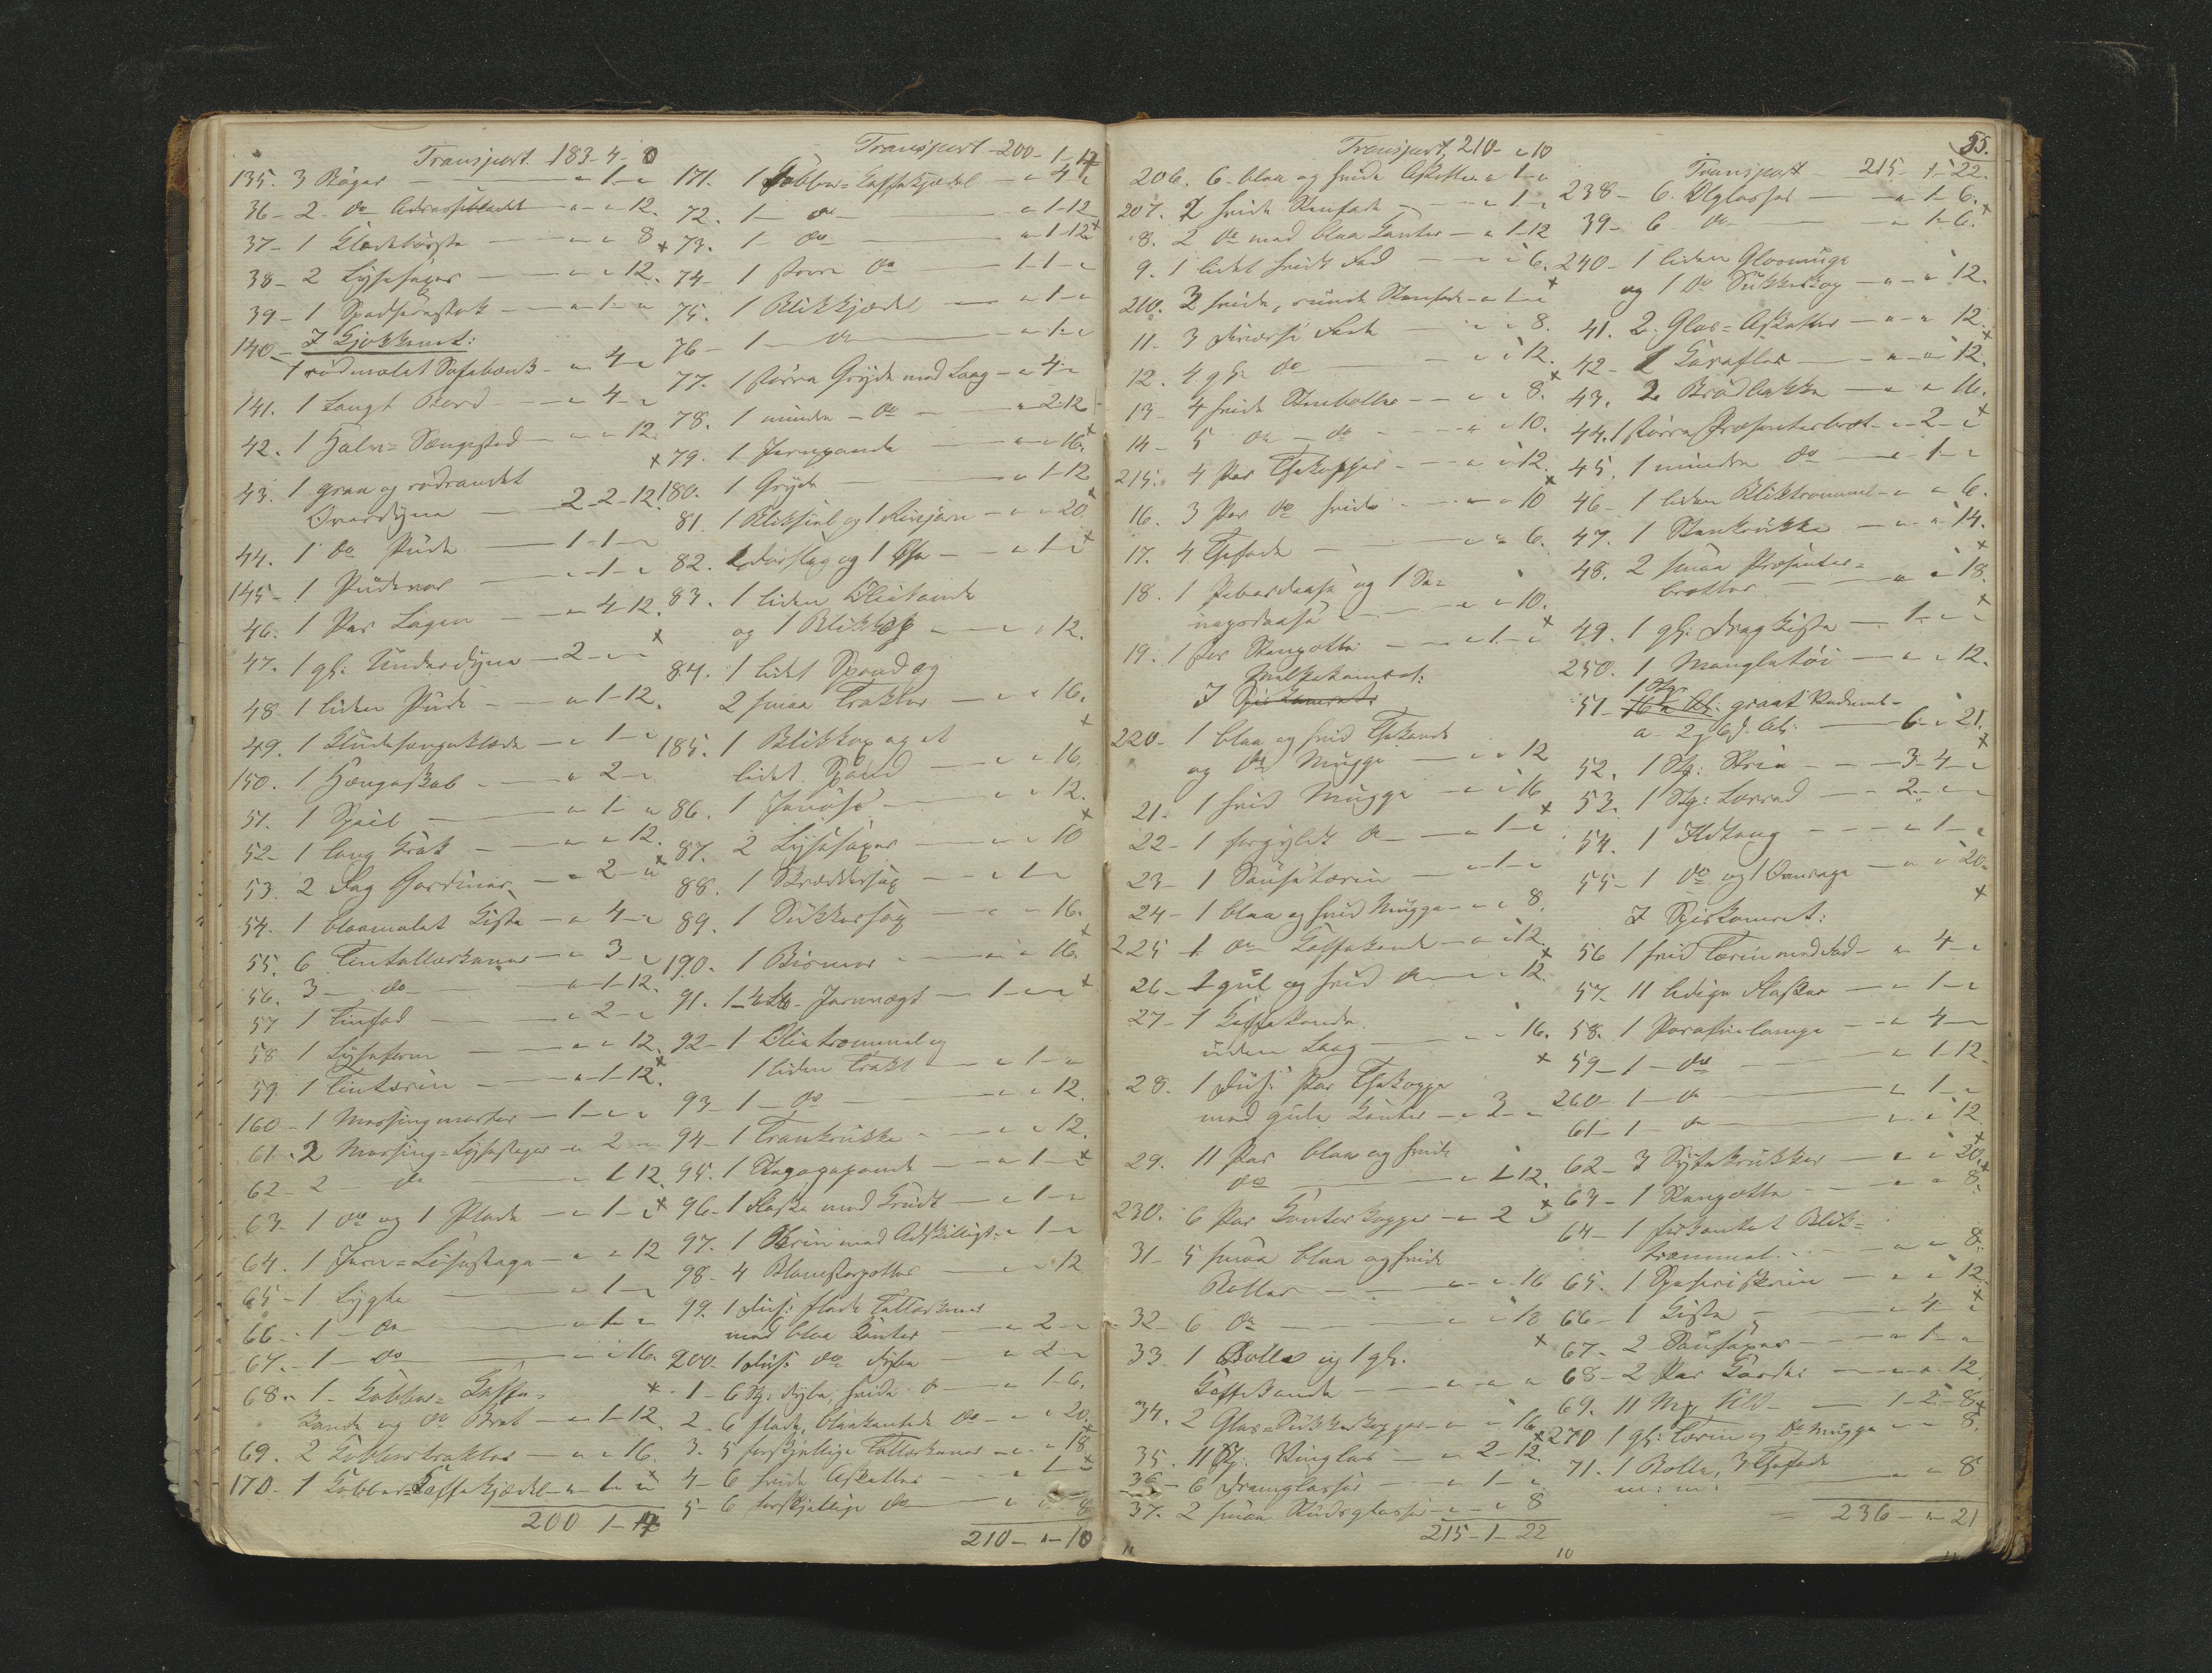 Transport 183-4-8
135. 3 Bøger — " 1 "
36 - 2 do Adressebladet " " 12.
37 - 1 Klædebørste — " " 8
38 - 2 Lysesaxer — " " 12.
39 - 1 Spadserstok — " 1 "
140 - I Kjøkkenet:
1 rødmalet Sofabænk - " 4 "
141. 1 Langt Bord — " 4 "
42. 1 Halm-Sengested — " " 12.
43. 1 graa og rødrandet
Overdyne — 2-2-12.
44. 1 do Pude — 1-1-"
145 - 1 Pudevar — " 1 "
46. 1 Par Lagen — " 4-12.
47. 1 gl. Underdyne — 2 - " "
48. 1 liden Pude — " 1-12.
49. 1 — " 1 "
150. 1 Hængeskab — " 2 "
51. 1 Speil — " 1 "
52 - 1 lang Krak — " " 12.
53. 2 Fag Gardiner — " 2 "
54. 1 blaamalet Kiste — " 4 "
55. 6 Tintallerkener — " 3 "
56. 3 — do — " 1-12.
57 1 Tinfad — " 2 "
58 1 Lyseform — " " 12.
59. 1 Tinterin — " 1-12.
160 - 1 Messingmorter — 1 - " "
61. 2 Messing-Lysestager " 2 "
62 - 2 — do — " 1-12.
63 - 1 do og 1 Plade — " 1 "
64. 1 Jern-Lysestage — " " 12
65 - 1 Lygte — " 1 "
66. - 1 - do — " 1 "
67. - 1 - do — " " 16.
68. - 1 - Kobber-Kaffe-
kande og do Bret — " 1-12.
69. 2 Kobbertrakter — " " 16.
170 - 1 Kobber-Kaffekjedel " 1 "
200 1-4
Transport 200-1-4
171. 1 Kobber-Kaffekjedel — " 4 "
72. 1 — do — " 1-12
73. 1 — do — " 1-12
74 - 1 større do — 1-1-"
75. 1 Blikkjedel — " 1 "
76 - 1 — do — " 1 "
77. 1 større Gryde med Laag — " 4 "
78. 1 mindre — do — " 2-12
79. 1 Jernpande — " " 16.
180. 1 Gryde — " 1-12
81. 1 og 1 Rivjern — " " 20
82. 1 Dørslag og 1 Øse — " 1 "
83. 1 liden
og 1 — " " 12.
84. 1 lidet Spand og
2 smaa Trakter — " " 16.
185. 1 Blikkop og et
lidet Spand — " " 16.
86. 1 — " " 12.
87. 2 Lysesaxer — " " 10
88. 1 Skreddersax — " 1 "
89. 1 Sukkersax — " " 16.
190. 1 Bismer — " " 16.
91. 1 Jernvægt — 1 - " "
92 - 1 Olietrommel og
1 liden Trakt — " 1 "
93 - 1 - do — " " 12.
94 - 1 Trankrukke — " " 12.
95. 1 Stegepande — " 1 "
96 - 1 Flaske med Krudt — " 1 "
97. 1 Skrin med Adskilligt — " 1 "
98 - 4 Blomsterpotter — " " 12
99. 1 Dus: flade Tallerkener
med blaa Kanter — " 2 "
200 - 1 Dus: do dybe — " 2 "
1 - 6 St: dybe, hvide do — " 1-6.
2 - 6 flade, blaakantede do — " " 20.
3 - 5 forskjellige Tallerkener — " " 18
4 - 6 hvide Asketter — " 1 "
5 - 6 forskjellige do — " " 8
210 - " - 10
Transport 210 - " 10
206. 6 blaa og hvide Asketter " 1 "
207. 2 hvide Stenfade — " 1 "
8. 2 do med blaa Kanter — " 1-12
9. 1 lidet hvidt Fad — " " 6.
210. 3 hvide, runde Stenfade — " 1 "
11 - 3 diverse Fade — " " 8.
12. 4 gl. do — " " 12.
13 - 4 hvide Stenboller — " " 8.
14 - 5 do - do — " " 10.
215. 4 Par Thekopper — " " 12.
16. 3 Par do hvide — " " 10
17. 4 Thefade — " " 6.
18. 1 Peberdaase og 1 Se-
nepsdaase — " " 10.
19. 1 Stenpotte — " 1 "
Melkekamret:
I Spiskamret:
220 - 1 blaa og hvid Thekande
og do Mugge — " " 12
21. 1 hvid Mugge — " " 16
22 - 1 forgyldt do — " 1 "
23 - 1 Sauseterin — " 1 "
24 - 1 blaa og hvid Mugge — " " 8.
225 - 1 do Kaffekande — " " 12.
26 - 1 gul og hvid do — " " 12.
27 - 1 Kaffekande
uden Laag — " " 16.
28. 1 Dus: Par Thekopper
med gule Kanter — " 3 "
29. 11 Par blaa og hvide
do — " 1-12.
230. 6 Par Kanterkopper — " 2 "
31 - 5 smaa blaa og hvide
Boller — " " 16
32 - 6 do — " " 18
33. 1 Bolle og 1 gl.
Kaffekande — " " "
34. 2 Glas-Sukkerkopper — " " 16
35. 11 St: Vinglas — " 2-12.
36 - 6 Dramglasse — " 1 "
37. 2 smaa — " " 8
215-1-22
55.
Transport 215-1-22.
238 - 6 Ølglasser — " 1-6.
39 - 6 do — " 1-6.
240 - 1 liden Glasmugge
og 1 do Sukkerkop — " " 12.
41. 2 Glas-Asketter — " " 12.
42 - 1 Karafler — " " 12.
43. 2 Brødbakke — " " 16.
44. 1 større Præsenterbret — " 2 "
45. 1 mindre do — " 1 "
46 - 1 liden Bliktrommel — " " 6.
47. 1 Stenkrukke — " " 14.
48. 2 smaa Præsenter-
bretter — " " 18.
49. 1 gl: Dragkiste — 1 - " "
250. 1 Mangletøi — " " 12.
51 - graat Vadmel
a 2 — 6 - " 21.
52. 1 St: Strie — 3-4-"
53. 1 St: Lerred — 2 - " "
54. 1 Ildtang — " 1 "
55 - 1 do og 1 Ovnrage — " " 20.
I Spiskamret:
56 1 hvid Terin med Fad — " 4 "
57 - 11 ledige Flasker — " 1 "
58. 1 Parafinlampe — " 4 "
59 - 1 - do — " 1-12.
260 - 1 - do — " 1 "
61 - 1 - do — " " 12.
62 - 3 Syltekrukker — " " 20.
63 - 1 Stenpotte — " " 8.
64 - 1 firkantet Blik-
trommel — " " 8.
65. 1 — " " 12.
66 - 1 Kiste — " 4 "
67. 2 Sausaxer — " 1 "
68 - 2 Par Karder — " " 12.
69. 11 Mrk Uld — 1-2-8.
270 1 gl: Terin og do Mugge — " " 8.
71. 1 Bolle, 3 Thefade
m: m: — " " 8
236 - " - 21
10